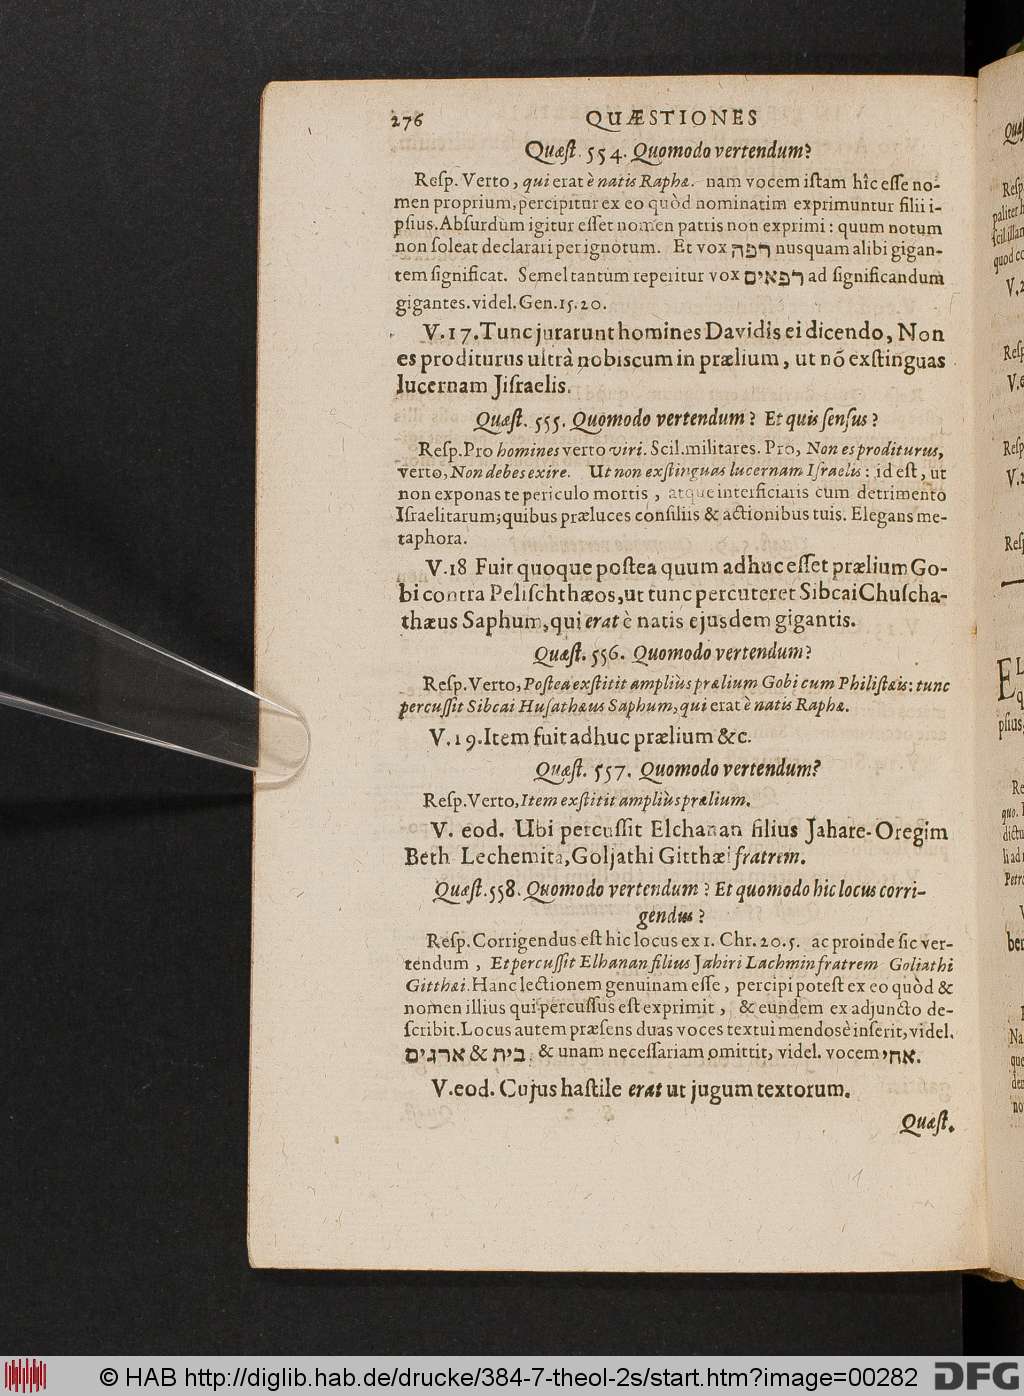 276 QUÆSTIONES
Quæſt. 554. Quomodo vertendum?
Reſp. Verto, qui erat è natis Raphæ. nam vocem iſtam hîc eſſe no-
men proprium, percipitur ex eo quòd nominatim exprimuntur filii i-
pſius. Abſurdum igitur eſſet nomen patris non exprimi: quum notum
non ſoleat declarari per ignotum. Et vox רפה nusquam alibi gigan-
tem ſignificat. Semel tantùm reperitur vox רפאים ad ſignificandum
gigantes. videl. Gen. 15. 20.
V. 17. Tunc jurarunt homines Davidis ei dicendo, Non
es proditurus ultrà nobiscum in prælium, ut nō exſtinguas
lucernam Jiſraelis.
Quæſt. 555. Quomodo vertendum? Et quis ſenſus?
Reſp. Pro homines verto viri. Scil. militares. Pro, Non es proditurus,
verto, Non debes exire. Ut non exſtinguas lucernam Iſraelis: id eſt, ut
non exponas te periculo mortis, atque interficiaris cum detrimento
Iſraelitarum; quibus præluces conſiliis & actionibus tuis. Elegans me-
taphora.
V. 18 Fuit quoque poſtea quum adhuc eſſet prælium Go-
bi contra Peliſchthæos, ut tunc percuteret Sibcai Chuſcha-
thæus Saphum, qui erat è natis ejusdem gigantis.
Quæſt. 556. Quomodo vertendum?
Reſp. Verto, Poſtea exſtitit ampliùs prælium Gobi cum Philiſtæis: tunc
percuſſit Sibcai Huſathæus Saphum, qui erat è natis Raphæ.
V. 19. Item fuit adhuc prælium &c.
Quæſt. 557. Quomodo vertendum?
Reſp. Verto, Item exſtitit ampliùs prælium.
V. eod. Ubi percuſſit Elchanan filius Jahare-Oregim
Beth Lechemita, Goljathi Gitthæi fratrem.
Quæſt. 558. Quomodo vertendum? Et quomodo hic locus corri-
gendus?
Reſp. Corrigendus eſt hic locus ex 1. Chr. 20. 5. ac proinde ſic ver-
tendum, Et percuſſit Elhanan filius Jahiri Lachmin fratrem Goliathi
Gitthæi. Hanc lectionem genuinam eſſe, percipi poteſt ex eo quòd &
nomen illius qui percuſſus eſt exprimit, & eundem ex adjuncto de-
ſcribit. Locus autem præſens duas voces textui mendosè inſerit, videl.
בית & ארגים, & unam neceſſariam omittit, videl. vocem אחי.
V. eod. Cujus haſtile erat ut jugum textorum.
Quæſt.
© HAB http://diglib.hab.de/drucke/384-7-theol-2s/start.htm?image=00282
DFG